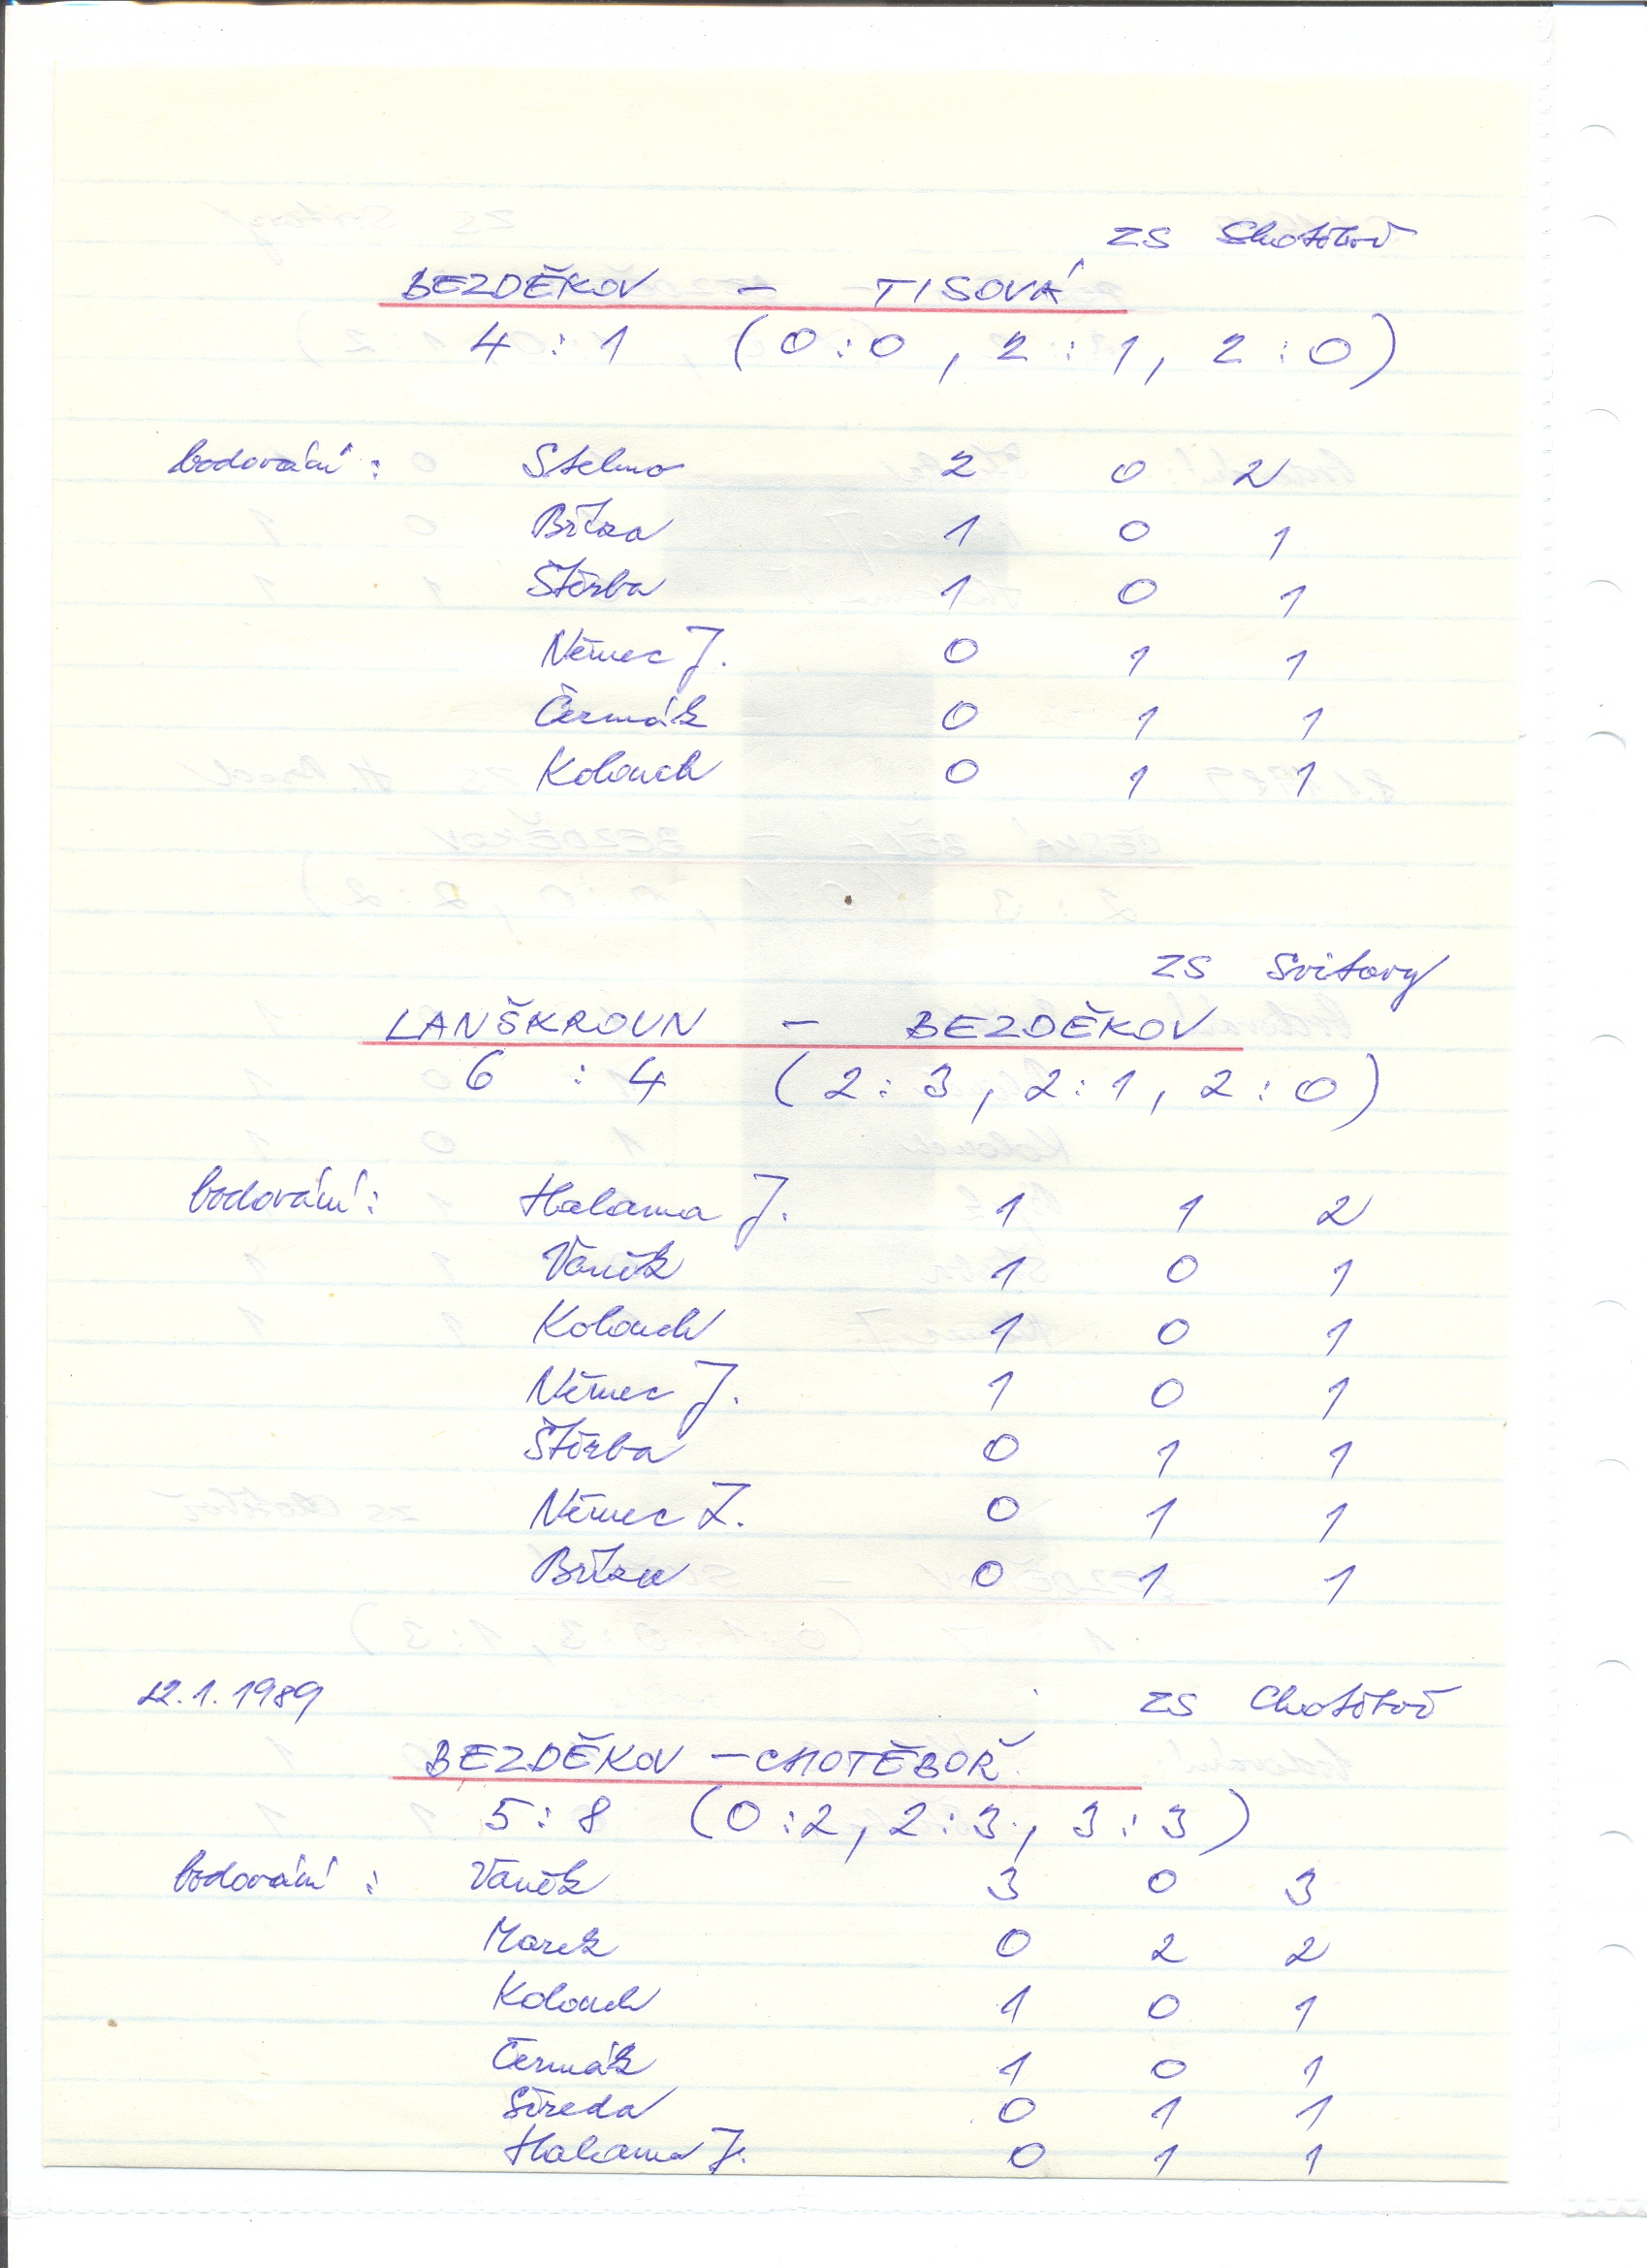 ZS Chotěboř
BEZDĚKOV - TISOVÁ
4 : 1 (0:0, 2:1, 2:0)
bodování: Stehno 2 0 2
Bříza 1 0 1
Štěrba 1 0 1
Němec J. 0 1 1
Čermák 0 1 1
Kolouch 0 1 1
ZS Svitavy
LANŠKROUN - BEZDĚKOV
6 : 4 (2:3, 2:1, 2:0)
bodování: Halama J. 1 1 2
Vaněk 1 0 1
Kolouch 1 0 1
Němec J. 1 0 1
Štěrba 0 1 1
Němec Z. 0 1 1
Bříza 0 1 1
22.1.1989 ZS Chotěboř
BEZDĚKOV - CHOTĚBOŘ
5:8 (0:2, 2:3, 3:3)
bodování: Vaněk 3 0 3
Marek 0 2 2
Kolouch 1 0 1
Čermák 1 0 1
Středa 0 1 1
Halama J. 0 1 1